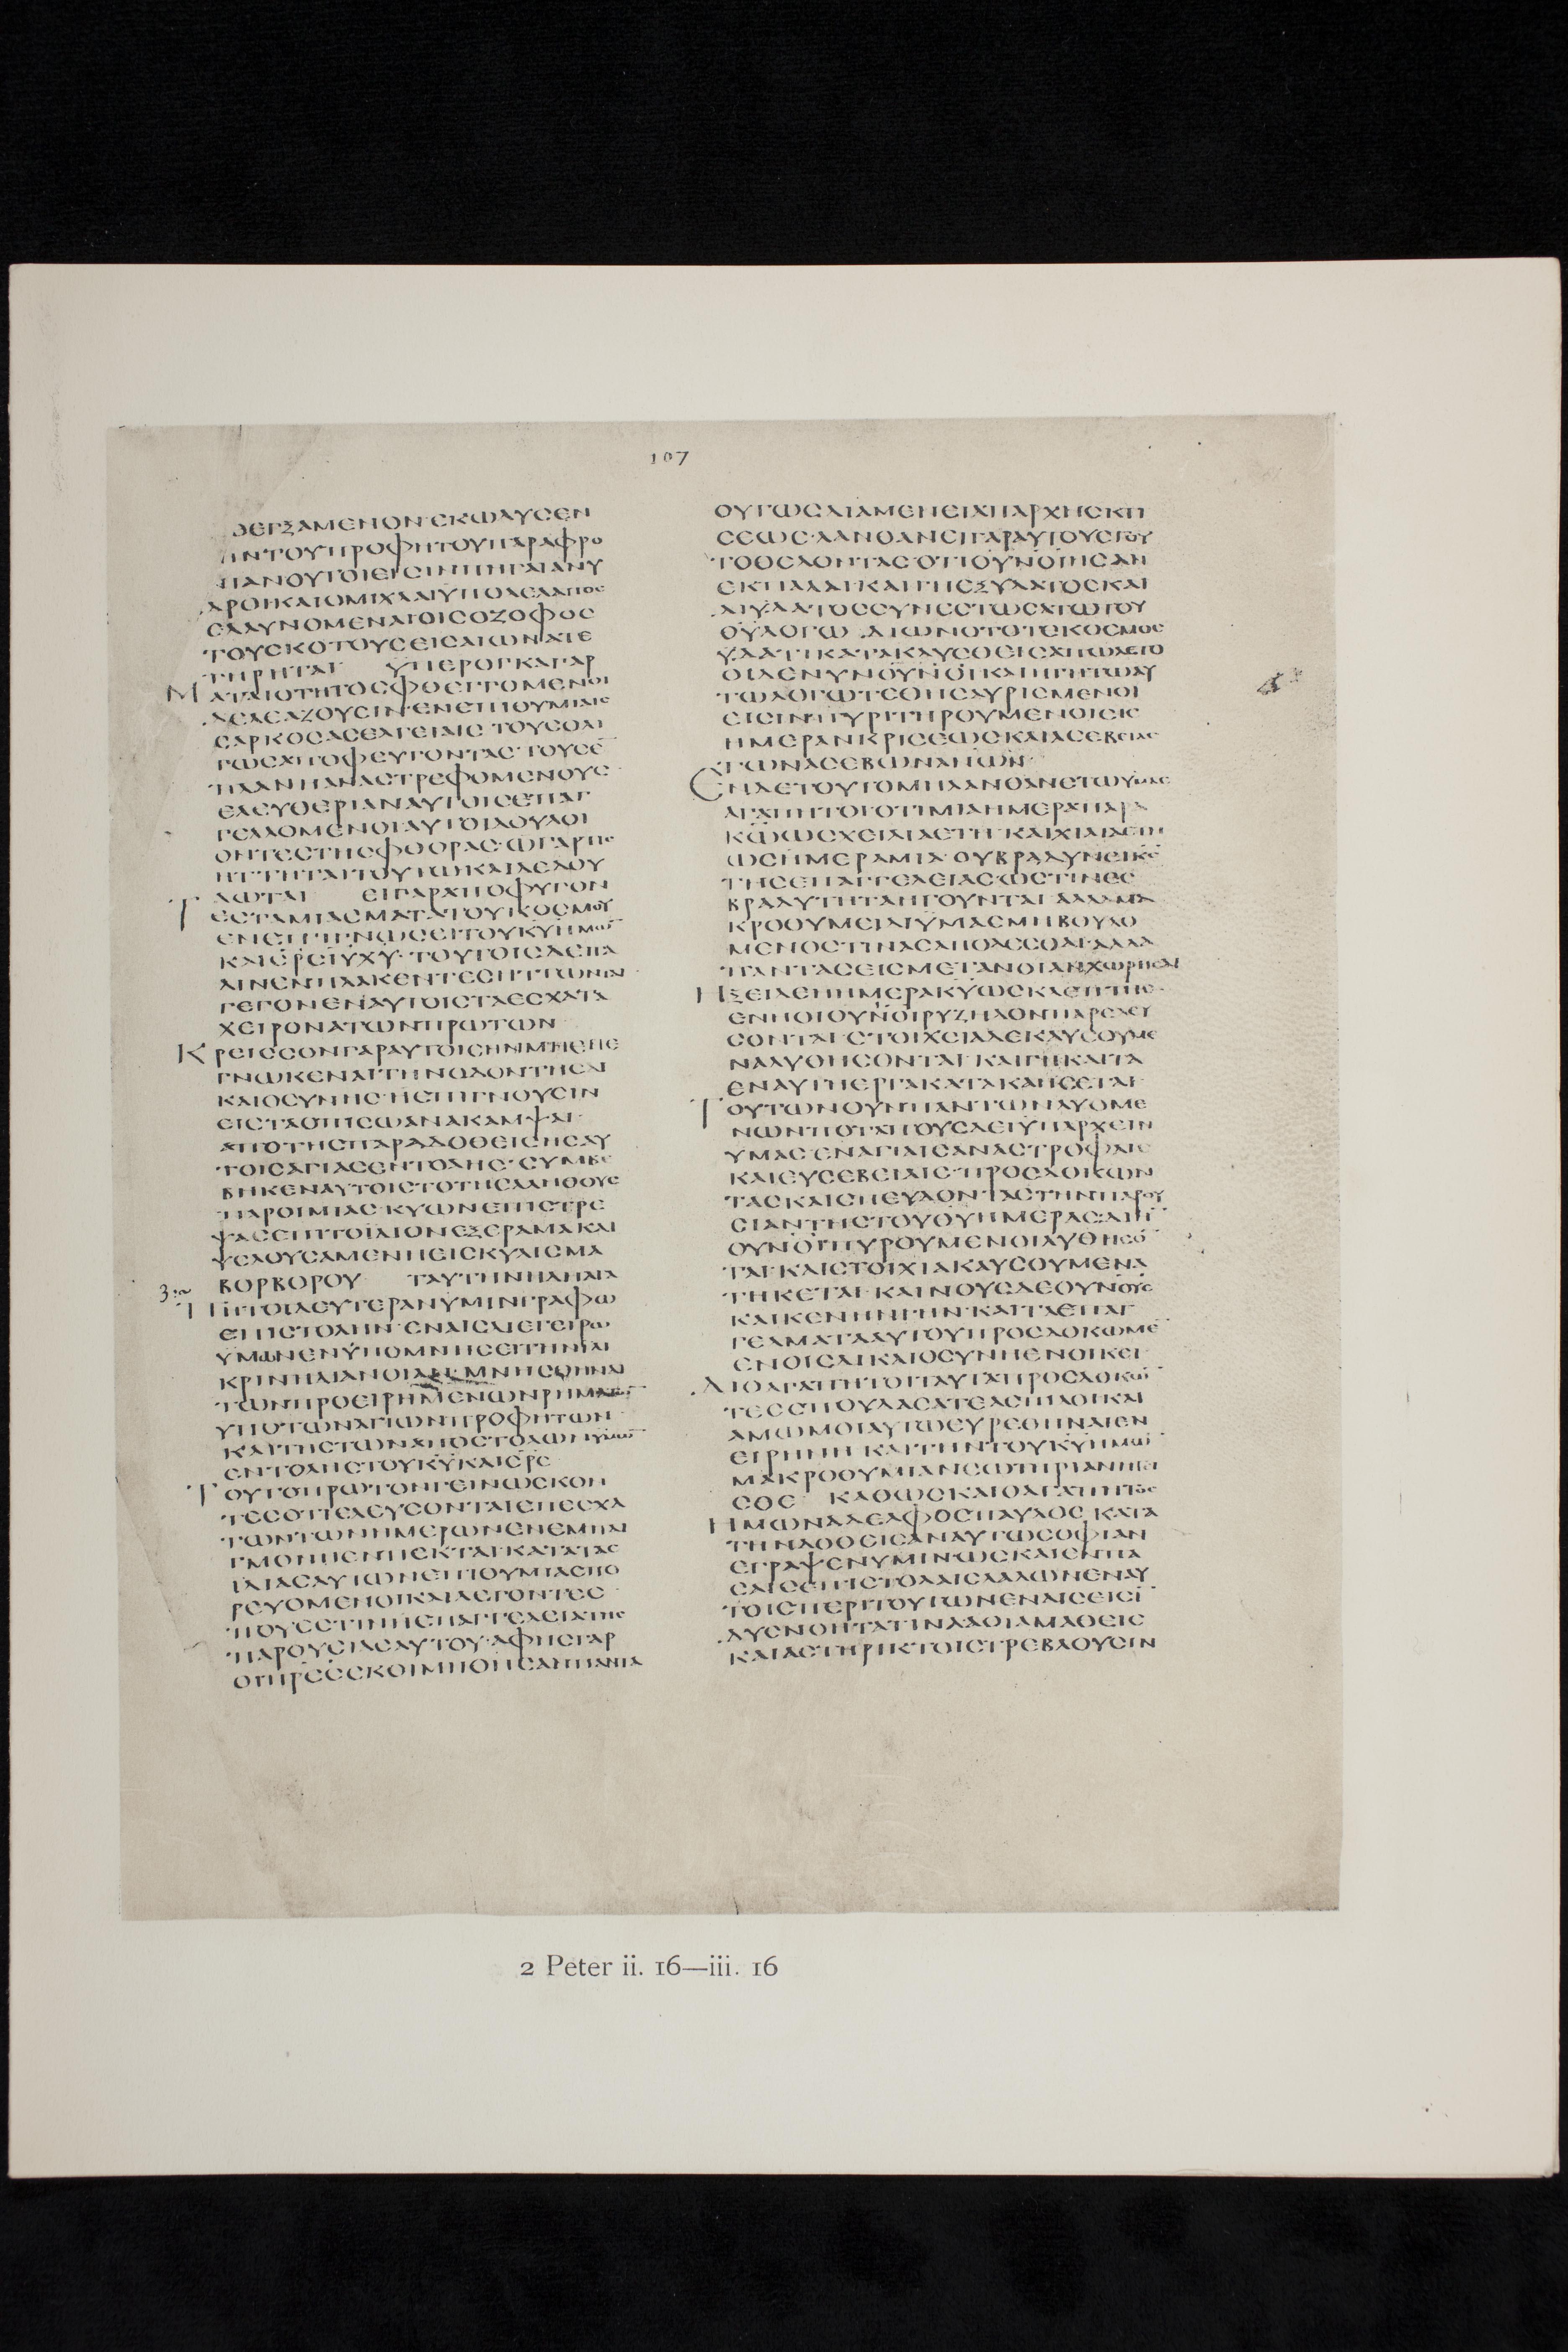 107
ΘΕΓΞΑΜΕΝΟΝΕΚΩΛΥCΕΝ
ΗΝΤΟΥΠΡΟΦΗΤΟΥΠΑΡΑΦΡΟ
ΝΙΑΝΟΥΤΟΙΕΙCΙΝΠΗΓΑΙΑΝΥ
ΔΡΟΙΚΑΙΟΜΙΧΛΑΙΥΠΟΛΕΛΑΠΟC
ΕΛΑΥΝΟΜΕΝΑΙΟΙCΟΖΟΦΟC
ΤΟΥCΚΟΤΟΥCΕΙCΑΙΩΝΑΤΕ
ΤΗΡΗΤΑΙ ΥΠΕΡΟΓΚΑΓΑΡ
ΜΑΤΑΙΟΤΗΤΟCΦΘΕΓΓΟΜΕΝΟΙ
ΔΕΛΕΑΖΟΥCΙΝΕΝΕΠΙΘΥΜΙΑΙC
CΑΡΚΟCΑCΕΛΓΕΙΑΙC·ΤΟΥCΟΛΙ
ΓΩCΑΠΟΦΕΥΓΟΝΤΑC·ΤΟΥCΕ̅
ΠΛΑΝΗΑΝΑCΤΡΕΦΟΜΕΝΟΥC
ΕΛΕΥΘΕΡΙΑΝΑΥΤΟΙCΕΠΑΓ
ΓΕΛΛΟΜΕΝΟΙΑΥΤΟΙΔΟΥΛΟΙ
ΟΝΤΕCΤΗCΦΘΟΡΑC·ΩΓΑΡΤΙC
ΗΤΤΗΤΑΙΤΟΥΤΩΚΑΙΔΕΔΟΥ
ΛΩΤΑΙ ΕΙΓΑΡΑΠΟΦΥΓΟΝ
ΤΕCΤΑΜΙΑCΜΑΤΑΤΟΥΚΟCΜΟΥ
ΕΝΕΠΙΓΝΩCΕΙΤΟΥΚΥΗΜΩ̅
ΚΑΙCΡCΙΥΧΥ·ΤΟΥΤΟΙCΔΕΠΑ
ΛΙΝΕΝΠΛΑΚΕΝΤΕCΗΤΤΩΝΤΑΙ
ΓΕΓΟΝΕΝΑΥΤΟΙCΤΑΕCΧΑΤΑ
ΧΕΙΡΟΝΑΤΩΝΠΡΩΤΩΝ
ΚΡΕΙCCΟΝΓΑΡΑΥΤΟΙCΗΝΜΗΕΠΕ
ΓΝΩΚΕΝΑΙΤΗΝΟΔΟΝΤΗCΔΙ
ΚΑΙΟCΥΝΗC·ΗΕΠΙΓΝΟΥCΙΝ
ΕΙCΤΑΟΠΙCΩΑΝΑΚΑΜΨΑΙ
ΑΠΟΤΗCΠΑΡΑΔΟΘΕΙCΗCΑΥ
ΤΟΙCΑΓΙΑCΕΝΤΟΛΗC·CΥΜΒΕ
ΒΗΚΕΝΑΥΤΟΙCΤΟΤΗCΑΛΗΘΟΥC
ΠΑΡΟΙΜΙΑC·ΚΥΩΝΕΠΙCΤΡΕ
ΨΑCΕΠΙΤΟΙΔΙΟΝΕΞΕΡΑΜΑΚΑΙ
ΥCΛΟΥCΑΜΕΝΗΕΙCΚΥΛΙCΜΑ
ΒΟΡΒΟΡΟΥ ΤΑΥΤΗΝΗΔΗΑΓΑ
ΠΗΤΟΙΔΕΥΤΕΡΑΝΥΜΙΝΓΡΑΦΩ
ΕΠΙCΤΟΛΗΝ·ΕΝΑΙCΔΙΕΓΕΙΡΩ
ΥΜΩΝΕΝΥΠΟΜΝΗCΕΙΤΗΝΙΛΙ
ΚΡΙΝΗΔΙΑΝΟΙΑΝΜΝΗCΘΗΝΑΙ
ΤΩΝΠΡΟΕΙΡΗΜΕΝΩΝΡΗΜΑΤΩ̅
ΥΠΟΤΩΝΑΓΙΩΝΠΡΟΦΗΤΩΝ
ΚΑΙΤΗCΤΩΝΑΠΟCΤΟΛΩΝΥΜΩ̅
ΕΝΤΟΛΗCΤΟΥΚΥΚΑΙCΡC
ΤΟΥΤΟΠΡΩΤΟΝΓΕΙΝΩCΚΟΝ
ΤΕCΟΤΙΕΛΕΥCΟΝΤΑΙΕΠΕCΧΑ
ΤΩΝΤΩΝΗΜΕΡΩΝΕΝΕΜΠΑΙ
ΓΜΟΝΗΕΝΠΕΚΤΑΙ·ΚΑΤΑΤΑC
ΙΔΙΑCΑΥΤΩΝΕΠΙΘΥΜΙΑCΠΟ
ΡΕΥΟΜΕΝΟΙΚΑΙΛΕΓΟΝΤΕC
ΠΟΥΕCΤΙΝΗΕΠΑΓΓΕΛΕΙΑΤΗC
ΠΑΡΟΥCΙΑCΑΥΤΟΥ·ΑΦΗCΓΑΡ
ΟΙΠΡΕCΕΚΟΙΜΗΘΗCΑΝΠΑΝΤΑ
ΟΥΤΩCΔΙΑΜΕΝΕΙΑΠΑΡΧΗCΚΤΙ
CΕΩC·ΛΑΝΘΑΝΕΙΓΑΡΑΥΤΟΥCΤΟΥ
ΤΟΘΕΛΟΝΤΑC·ΟΤΙΟΥΝΟΙΗCΑΝ
ΕΚΠΑΛΑΙ·ΚΑΙΓΗΕΞΥΔΑΤΟCΚΑΙ
ΔΙΥΔΑΤΟCCΥΝΕCΤΩCΑΤΩΤΟΥ
ΘΥΛΟΓΩ·ΔΙΩΝΟΤΟΤΕΚΟCΜΟC
ΥΔΑΤΙΚΑΤΑΚΛΥCΘΕΙCΑΠΩΛΕΤΟ
ΟΙΔΕΝΥΝΟΥΝΟΙΚΑΙΗΓΗΤΩΑΥ
ΤΩΛΟΓΩΤΕΘΗCΑΥΡΙCΜΕΝΟΙ
ΕΙCΙΝΠΥΡΙΤΗΡΟΥΜΕΝΟΙΕΙC
ΗΜΕΡΑΝΚΡΙCΕΩCΚΑΙΑCΕΒΕΙΑC
ΤΩΝΑCΕΒΩΝΑΝΩΝ
ΕΝΔΕΤΟΥΤΟΜΗΛΑΝΘΑΝΕΤΩΥΜΑC
ΑΓΑΠΗΤΟΙΟΤΙΜΙΑΗΜΕΡΑΠΑΡΑ
ΚΩΩCΧΕΙΛΙΑΕΤΗ·ΚΑΙΧΙΛΙΑΕΤΗ
ΩCΗΜΕΡΑΜΙΑ·ΟΥΒΡΑΔΥΝΕΙΚC
ΤΗCΕΠΑΓΓΕΛΕΙΑCΩCΤΙΝΕC
ΒΡΑΔΥΤΗΤΑΗΓΟΥΝΤΑΙΑΛΛΑΜΑ
ΚΡΟΘΥΜΕΙΔΙΥΜΑCΜΗΒΟΥΛΟ
ΜΕΝΟCΤΙΝΑCΑΠΟΛΕCΘΑΙ·ΑΛΛΑ
ΠΑΝΤΑCΕΙCΜΕΤΑΝΟΙΑΝΧΩΡΗCΑΙ
ΗΞΕΙΔΕΗΗΜΕΡΑΚΥΩCΚΛΕΠΤΗC
ΕΝΗΟΙΟΥΝΟΙΡΥΖΗΔΟΝΠΑΡΕΛΕΥ
CΟΝΤΑΙ·CΤΟΙΧΕΙΑΔΕΚΑΥCΟΥΜΕ
ΝΑΛΥΘΗCΟΝΤΑΙ·ΚΑΙΓΗΚΑΙΤΑ
ΕΝΑΥΤΗΕΡΓΑΚΑΤΑΚΑΗCΕΤΑΙ·
ΤΟΥΤΩΝΟΥΝΠΑΝΤΩΝΛΥΟΜΕ
ΝΩΝΠΟΤΑΠΟΥCΔΕΙΥΠΑΡΧΕΙΝ
ΥΜΑC·ΕΝΑΓΙΑΙCΑΝΑCΤΡΟΦΑΙC
ΚΑΙΕΥCΕΒΕΙΑΙC·ΠΡΟCΔΟΚΩΝ
ΤΑCΚΑΙCΠΕΥΔΟΝΤΑCΤΗΝΠΑΡΟΥ
CΙΑΝΤΗCΤΟΥΘΥΗΜΕΡΑCΔΙΗ̅
ΟΥΝΟΙΠΥΡΟΥΜΕΝΟΙΛΥΘΗCΟ̅
ΤΑΙ·ΚΑΙCΤΟΙΧΙΑΚΑΥCΟΥΜΕΝΑ
ΤΗΚΕΤΑΙ·ΚΑΙΝΟΥCΔΕΟΥΝΟΥC
ΚΑΙΚΕΝΗΝΓΗΝ·ΚΑΙΤΑΕΠΑΓ
ΓΕΛΜΑΤΑΑΥΤΟΥΠΡΟCΔΟΚΩΜΕ̅
ΕΝΟΙCΔΙΚΑΙΟCΥΝΗΕΝΟΙΚΕΙ
ΔΙΟΑΓΑΠΗΤΟΙΤΑΥΤΑΠΡΟCΔΟΚΩ̅
ΤΕCCΠΟΥΔΑCΑΤΕΑCΠΙΛΟΙΚΑΙ
ΑΜΩΜΟΙΑΥΤΩΕΥΡΕΘΗΝΑΙΕΝ
ΕΙΡΗΝΗ·ΚΑΙΤΗΝΤΟΥΚΥΗΜΩ̅
ΜΑΚΡΟΘΥΜΙΑΝCΩΤΗΡΙΑΝΗΓΙ
CΘΕ ΚΑΘΩCΚΑΙΟΑΓΑΠΗΤΟC
ΗΜΩΝΑΔΕΛΦΟCΠΑΥΛΟC·ΚΑΤΑ
ΤΗΝΔΟΘΕΙCΑΝΑΥΤΩCΟΦΙΑΝ
ΕΓΡΑΨΕΝΥΜΙΝ·ΩCΚΑΙΕΝΠΑ
CΑΙCΕΠΙCΤΟΛΑΙCΛΑΛΩΝΕΝΑΥ
ΤΟΙCΠΕΡΙΤΟΥΤΩΝΕΝΑΙCΕΙCΙ̅
ΔΥCΝΟΗΤΑΤΙΝΑΑΟΙΑΜΑΘΕΙC
ΚΑΙΑCΤΗΡΙΚΤΟΙCΤΡΕΒΛΟΥCΙΝ
2 Peter ii. 16—iii. 16